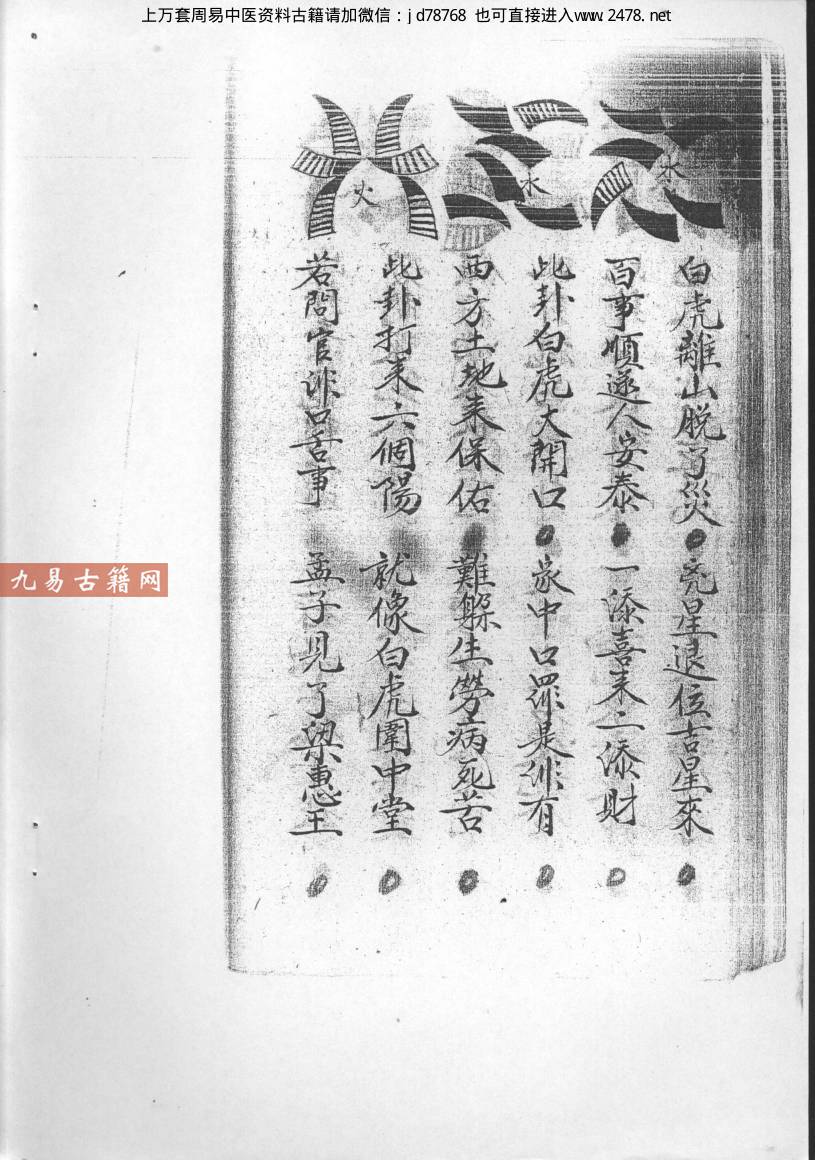 上万套周易中医资料古籍请加微信：jd78768 也可直接进入www.2478.net
水
水
火
白虎離山脱了災 兇星退位吉星來
百事順遂人安泰 一添喜来二添財
此卦白虎大開口 家中口舌是非有
西方土地来保佑 難躲生勞病死苦
此卦打来六個陽 就像白虎圍中堂
若問官非口舌事 孟子見了梁惠王
九易古籍网